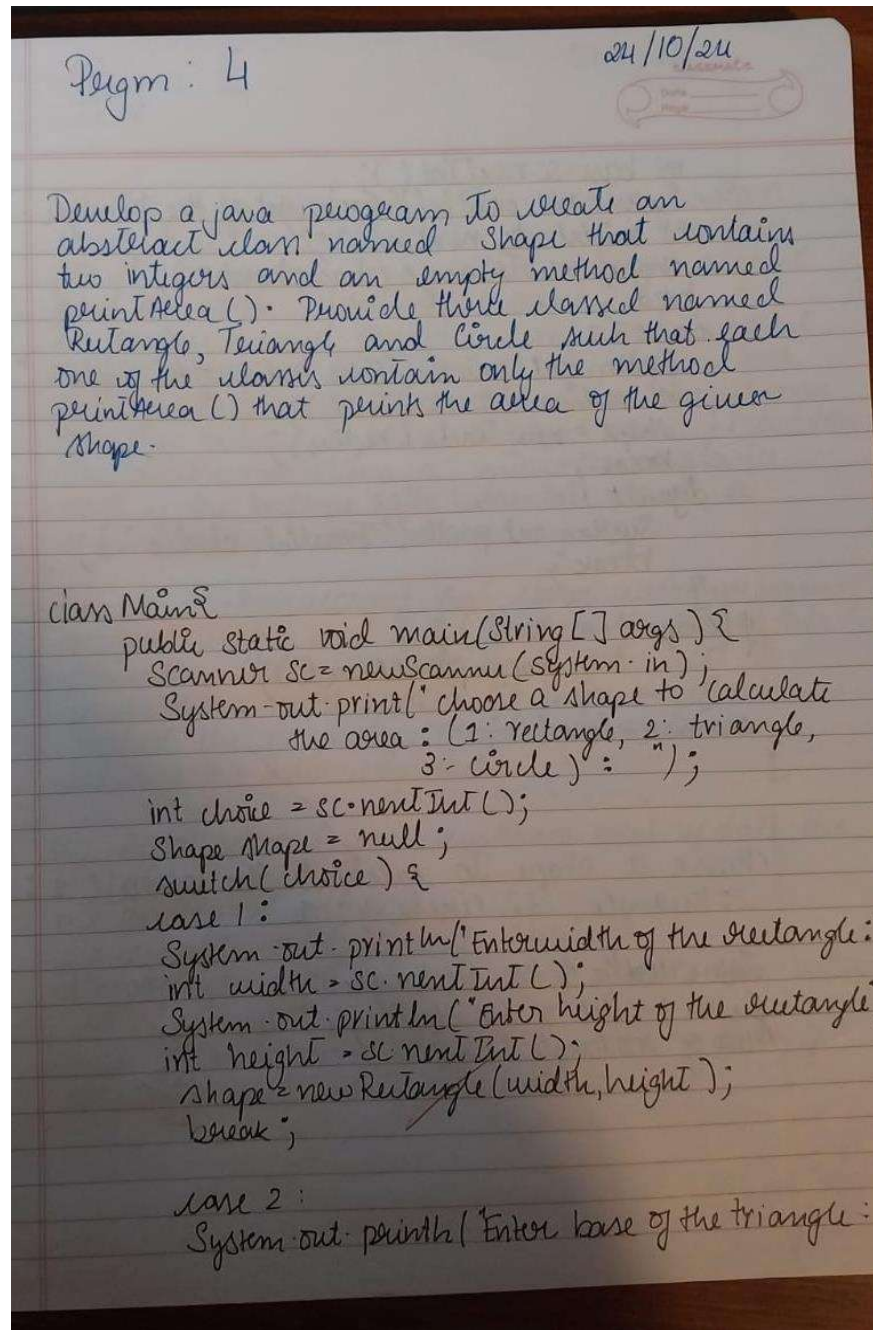 Prgm : 4
24/10/24
Develop a java program To create an
abstract class named Shape that contains
two integers and an empty method named
printArea(). Provide three classed named
Rectangle, Triangle and Circle such that each
one of the classes contain only the method
printArea() that prints the area of the given
shape.
class Main{
public static void main(String [] args) {
Scanner sc = new Scanner (System.in);
System.out.print(" choose a shape to calculate
the area : (1: rectangle, 2: triangle,
3:- circle) : ");
int choice = sc.nextInt();
Shape shape = null;
switch(choice) {
case 1 :
System.out.println("Enter width of the rectangle:
int width = sc.nextInt();
System.out.println("Enter height of the rectangle
int height = sc nextInt();
shape = new Rectangle(width, height);
break;
case 2 :
System.out.println("Enter base of the triangle: